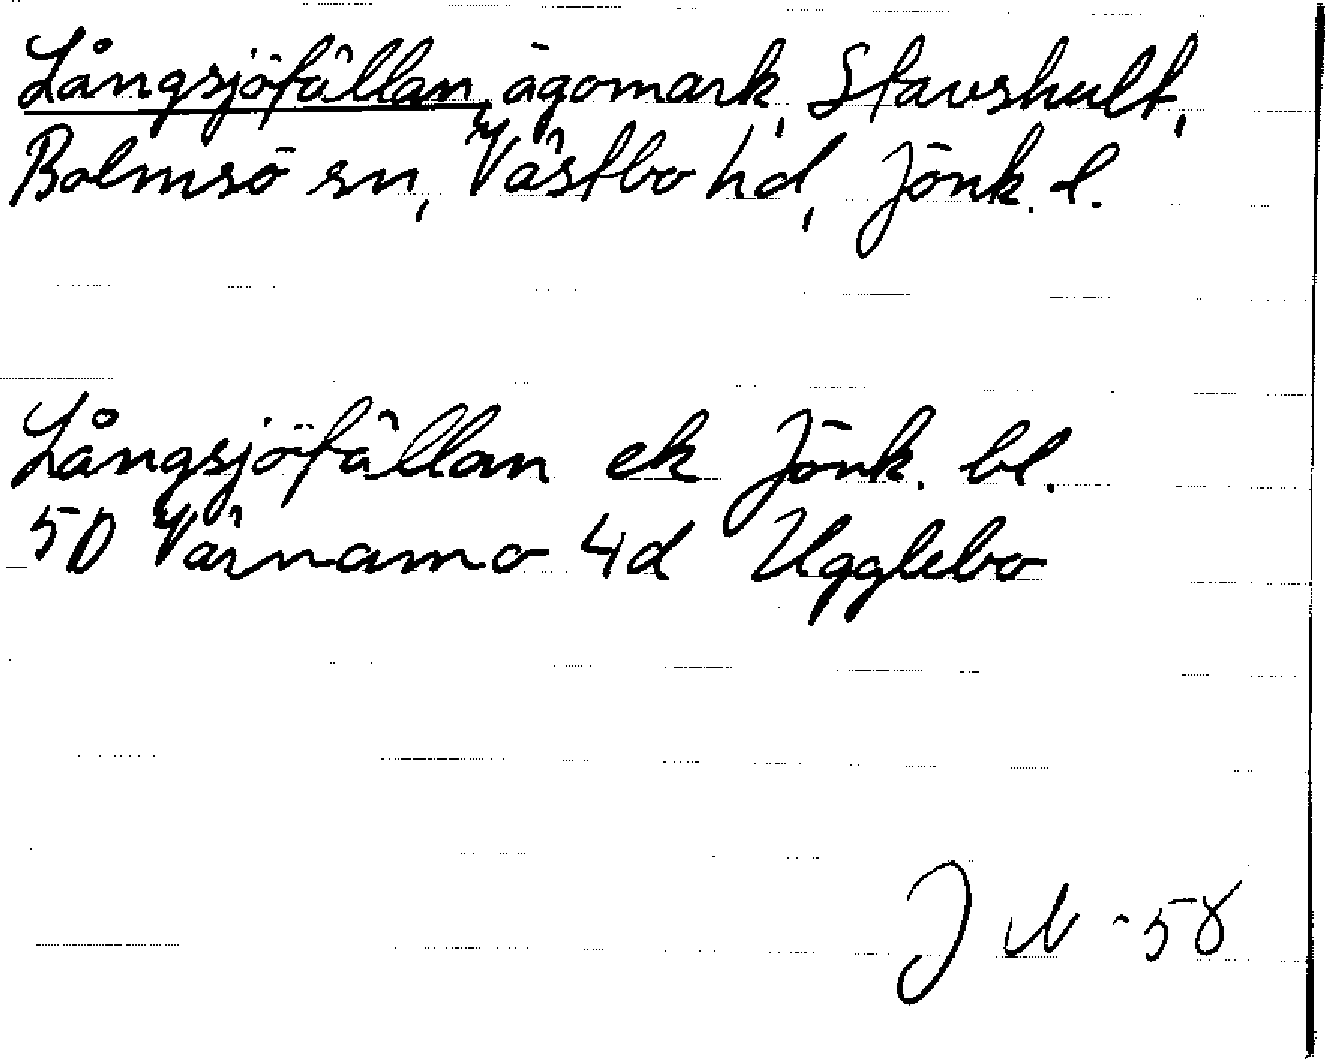 Långsjöfällan, ägomark, Stavshult,
Bolmsö sn, Västbo hd, Jönk. l.
Långsjöfällan ek Jönk. bl.
5D Värnamo 4d Ugglebo
J N -58